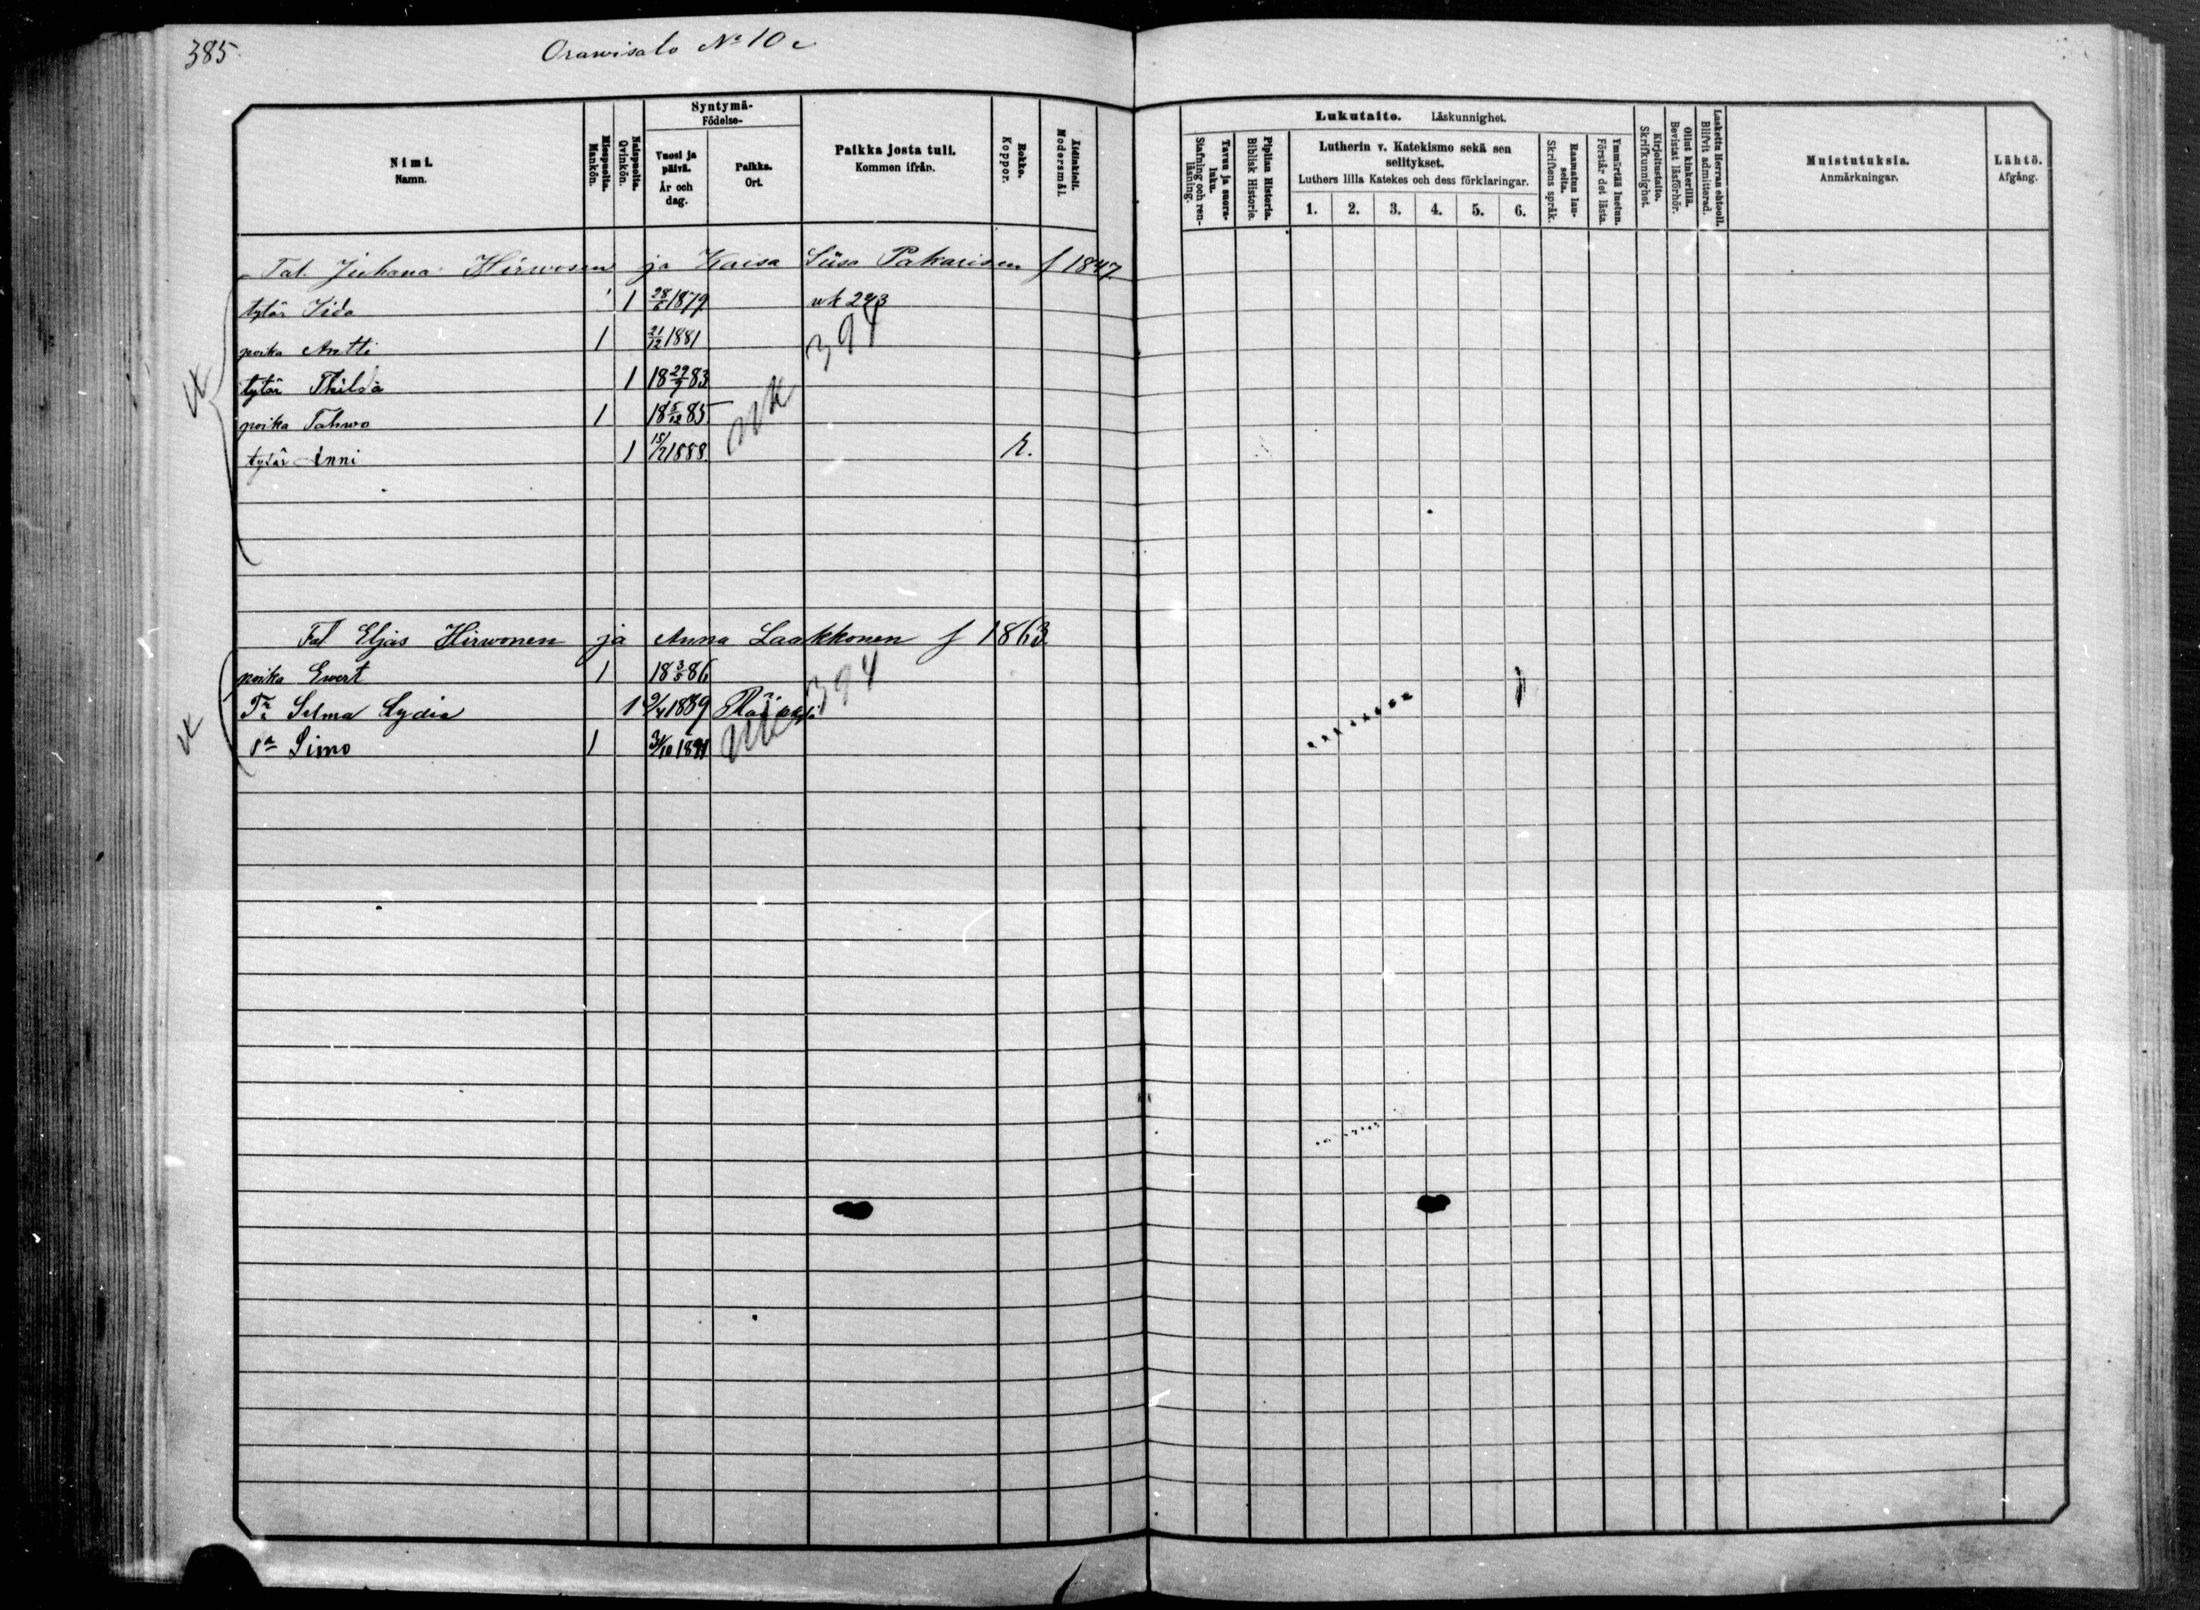 385
Orawisalo No 10 c
Nimi.
Namn.
Miespuolia.
Mankön.
Naispuolia.
Qvinkön.
Syntymä-
Födelse-
Vuosi ja
päivä.
År och
dag.
Paikka.
Ort.
Paikka josta tuli.
Kommen ifrån.
Rokko.
Koppor.
Äidinkieli.
Modersmål.
Lukutaito. Läskunnighet.
Tavuu ja suora-
luku.
Stafning och ren-
läsning.
Piplian Historia.
Biblisk Historie.
Lutherin v. Katekismo sekä sen
selitykset.
Luthers lilla Katekes och dess förklaringar.
1. 2. 3. 4. 5. 6.
Raamatun lau-
selta.
Skriftens språk.
Ymmärtää luetun.
Förstår det lästa.
Kirjoitustaito.
Skrifkunnighet.
Ollut kinkerillä.
Bevistat läsförhör.
Laskettu Herran ehtooll.
Blifvit admitterad.
Muistutuksia.
Anmärkningar.
Lähtö.
Afgång.
Tal. Juhana Hirwosen ja Kaisa Liisa Pakarisen f 1847
tytär Iida 1 28/6 1879 wk 293
poika Antti 1 21/12 1881 394
tytär Thilda 1 18 29/7 83
poika Tahwo 1 18 5/12 85 wk
tytär Anni 1 15/7 1888 r.
Tal Eljas Hirwonen ja Anna Laakkonen f 1863
poika Ewert 1 18 3/5 86 394
Tr Selma Lydia 1 9/4 1889
Pa Simo 1 31/10 1891 wk